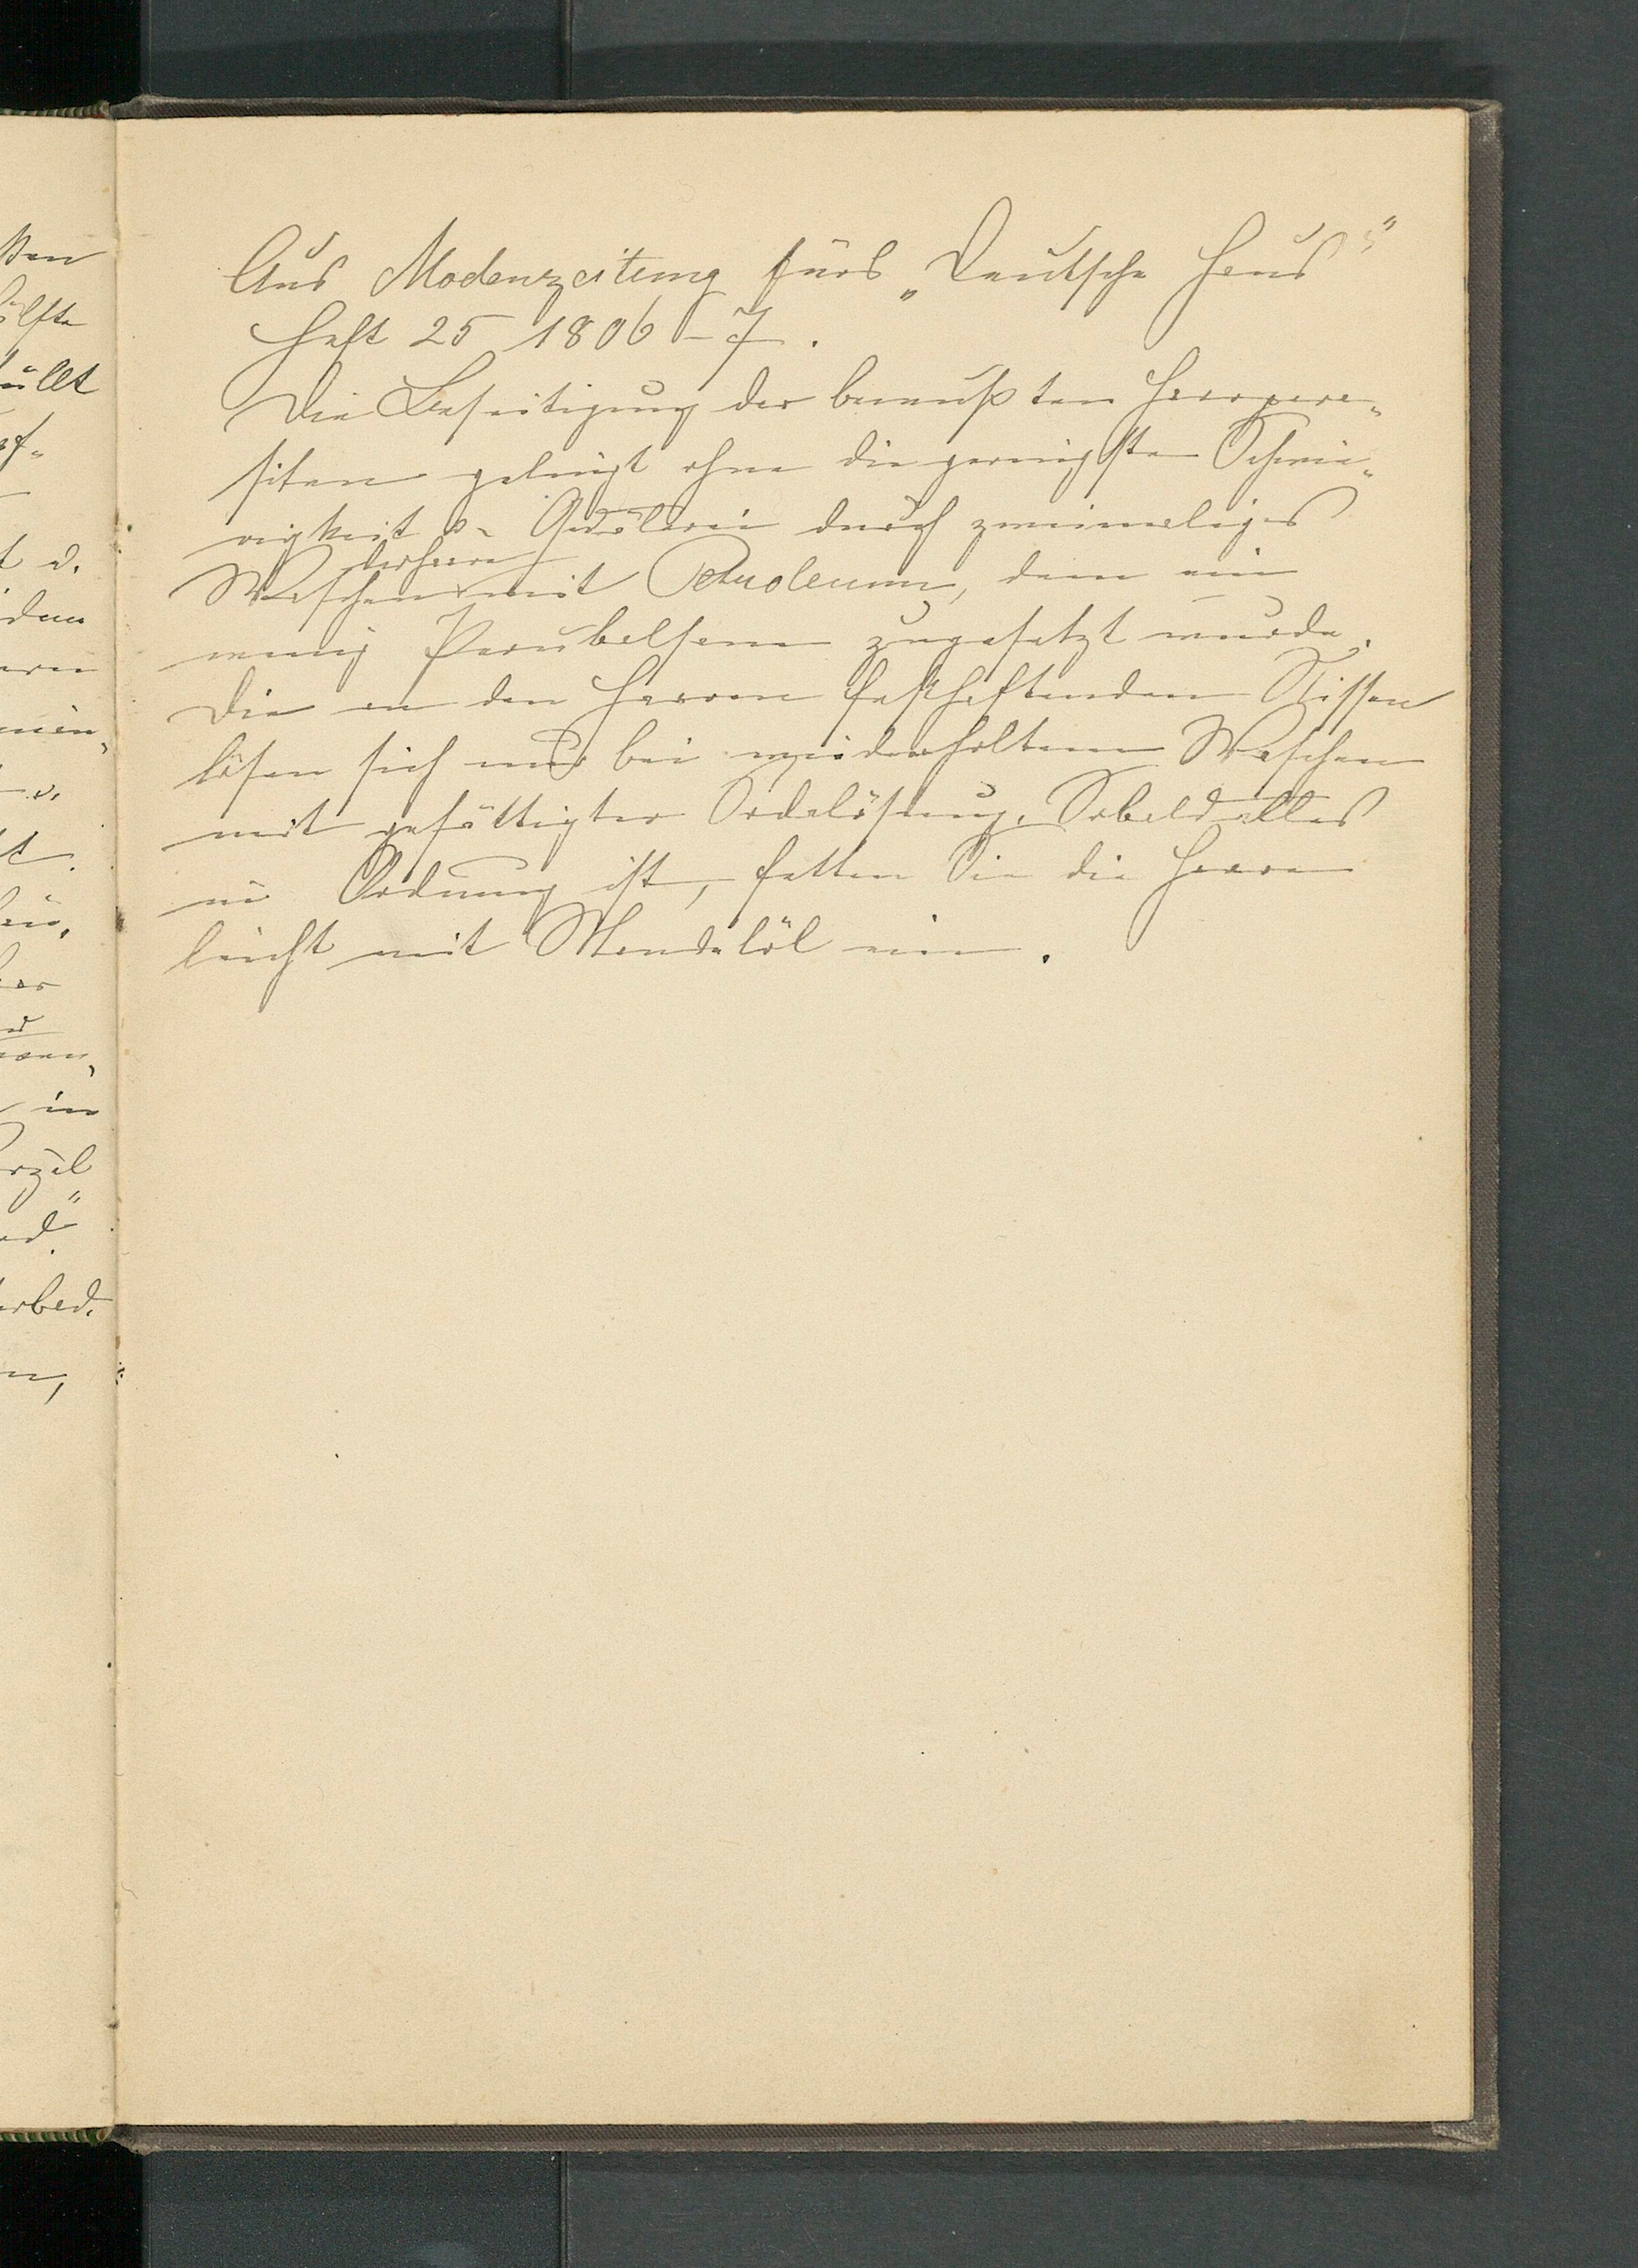 Aus Modenzeitung fürs „Deutsche Haus“
Heft 25 1806–7.
Die Beseitigung der bewußten Haarpara-
siten gelingt ohne die geringste Schwie-
rigkeit u. Quälerei durch zweimaliges
der Haare
Waschen mit Petroleum, dem ein
wenig Perubalsam zugesetzt wurde.
Die an den Haaren festhaftenden Nissen
lösen sich nur bei wiederholtem Waschen
mit gesättigter Sodalösung. Sobald alles
in Ordnung ist, fetten Sie die Haare
leicht mit Mandelöl ein.